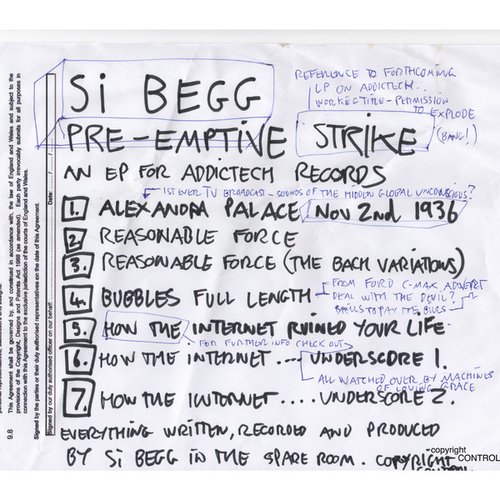 Si BEGG
REFERENCE TO FORTHCOMING
LP ON ADDICTECH...
WORKING TITLE - PERMISSION
TO EXPLODE
(BANG!)
PRE-EMPTIVE STRIKE
AN EP FOR ADDICTECH RECORDS
1ST EVER TV BROADCAST - SOUNDS OF THE HIDDEN GLOBAL UNCONSCIOUS?
1. ALEXANDRA PALACE, Nov 2nd 1936
2. REASONABLE FORCE
3. REASONABLE FORCE (THE BACH VARIATIONS)
4. BUBBLES FULL LENGTH
FROM FORD C-MAX ADVERT
DEAL WITH THE DEVIL?
BILLS TO PAY THE BILLS..
5. HOW THE INTERNET RUINED YOUR LIFE
FOR FURTHER INFO CHECK OUT
6. HOW THE INTERNET .... UNDERSCORE 1.
ALL WATCHED OVER BY MACHINES
OF LOVING GRACE
7. HOW THE INTORNET .... UNDERSCORE 2.
EVERYTHING WRITTEN, RECORDED AND PRODUCED
BY Si BEGG IN THE SPARE ROOM. COPYRIGHT
CONTROL
copyright
CONTROL
9.8
This Agreement shall be governed by, and construed in accordance with, the law of England and Wales and subject to the
provisions of the Copyright, Designs and Patents Act 1988 (as amended). Each party irrevocably submits for all purposes in
connection with this Agreement to the exclusive jurisdiction of the courts of England and Wales.
Signed by the parties or their duly authorised representatives on the date of this Agreement.
Signed by our duly authorised officer on our behalf: